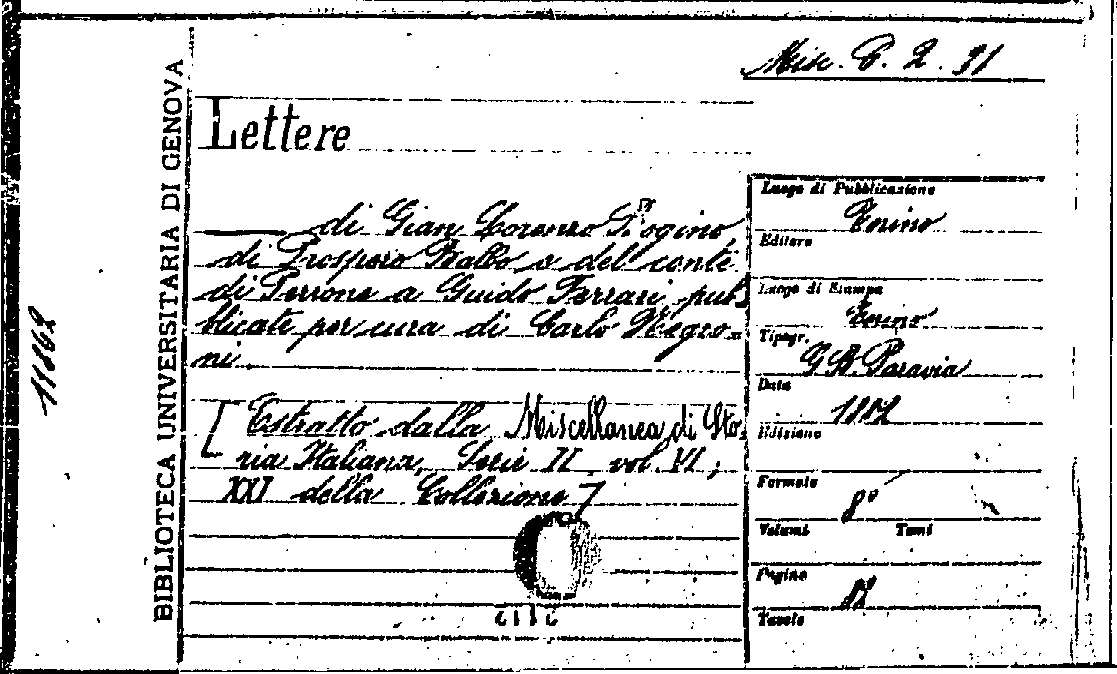 Misc. C. 2. 31
Lettere
di Gian Lorenzo Bogino,
di Prospero Balbo e del conte
di Perrone a Guido Ferrari pub-
blicate per cura di Carlo Negro-
ni.
[Estratto dalla Miscellanea di Sto-
ria Italiana, Serie II. vol. VI,
XXI della Collezione]
BIBLIOTECA UNIVERSITARIA DI GENOVA
Luogo di Pubblicazione
Torino
Editore
Luogo di Stampa
Torino
Tipogr.
G. B. Paravia
Data
Edizione
Formato
8º
Volumi Tomi
Pagine
Tavole